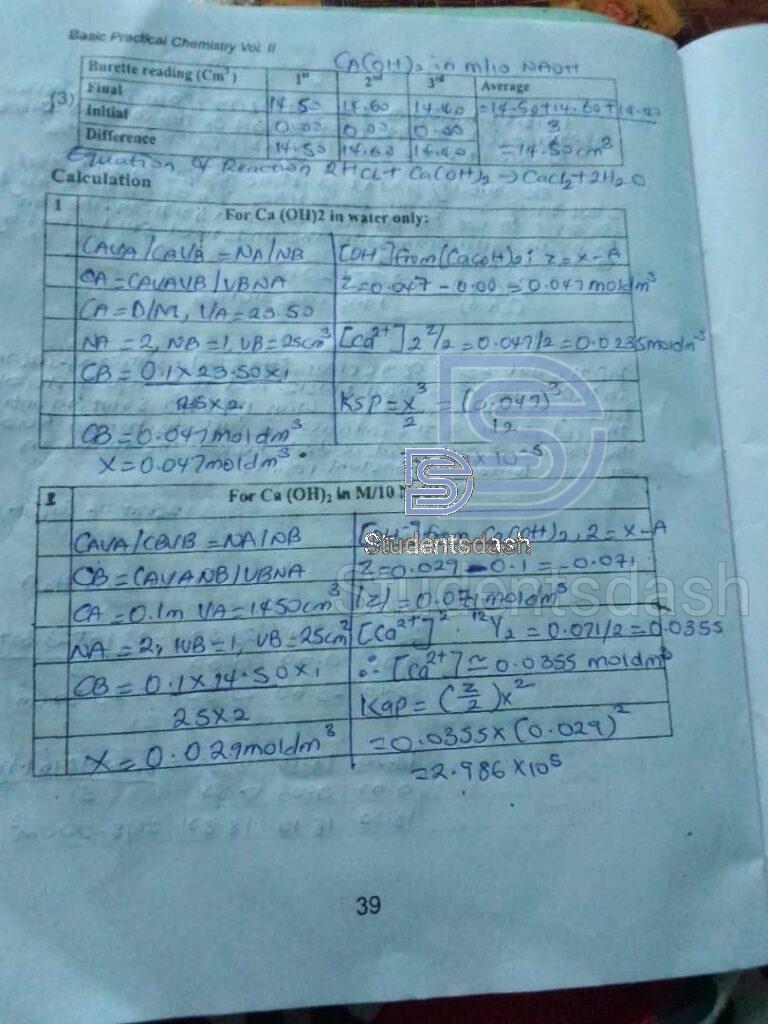 Basic Practical Chemistry Vol. II
Ca(OH)2 in m/10 NaOH
Burette reading (Cm3) 1st 2nd 3rd Average
(3) Final 14.50 14.60 14.40 =14.50+14.60+14.40
Initial 0.00 0.00 0.00 3
Difference 14.50 14.60 14.40 =14.50cm3
Equation of Reaction 2HCl+ Ca(OH)2 → CaCl2+2H2O
Calculation
1 For Ca (OH)2 in water only:
CAVA/CBVB = NA/NB [OH-] from [Ca(OH)2; Z = x-A
CA=CAVAVB/VBNA Z=0.047 - 0.00 = 0.047moldm3
VA=23.50
NA = 2, NB=1, VB=25cm3 [Ca2+] 2 Z/2 = 0.047/2 = 0.0235moldm3
CB = 0.1X23.50X1
25X2 Ksp= x3/2 = (0.047)3/12
CB=0.047moldm3
X=0.047moldm3 x 10-5
For Ca (OH)2 in M/10
CAVA/CBVB = NA/NB [OH-] from Ca(OH)2, 2 = x-A
CB=CAVANB/VBNA Z=0.029-0.1=-0.071
CA=0.1m VA=1450cm3 |Z|=0.071moldm3
NA = 2, NB=1, VB=25cm2 [Ca2+]2 = 0.071/2=0.0355
CB=0.1X14.50X1 ∴ [Ca2+]≈0.0355 moldm3
25X2 Ksp=(Z/2)x2
X=0.029moldm3 =0.0355X(0.029)2
=2.986X105
Studentsdash
Studentsdash
39